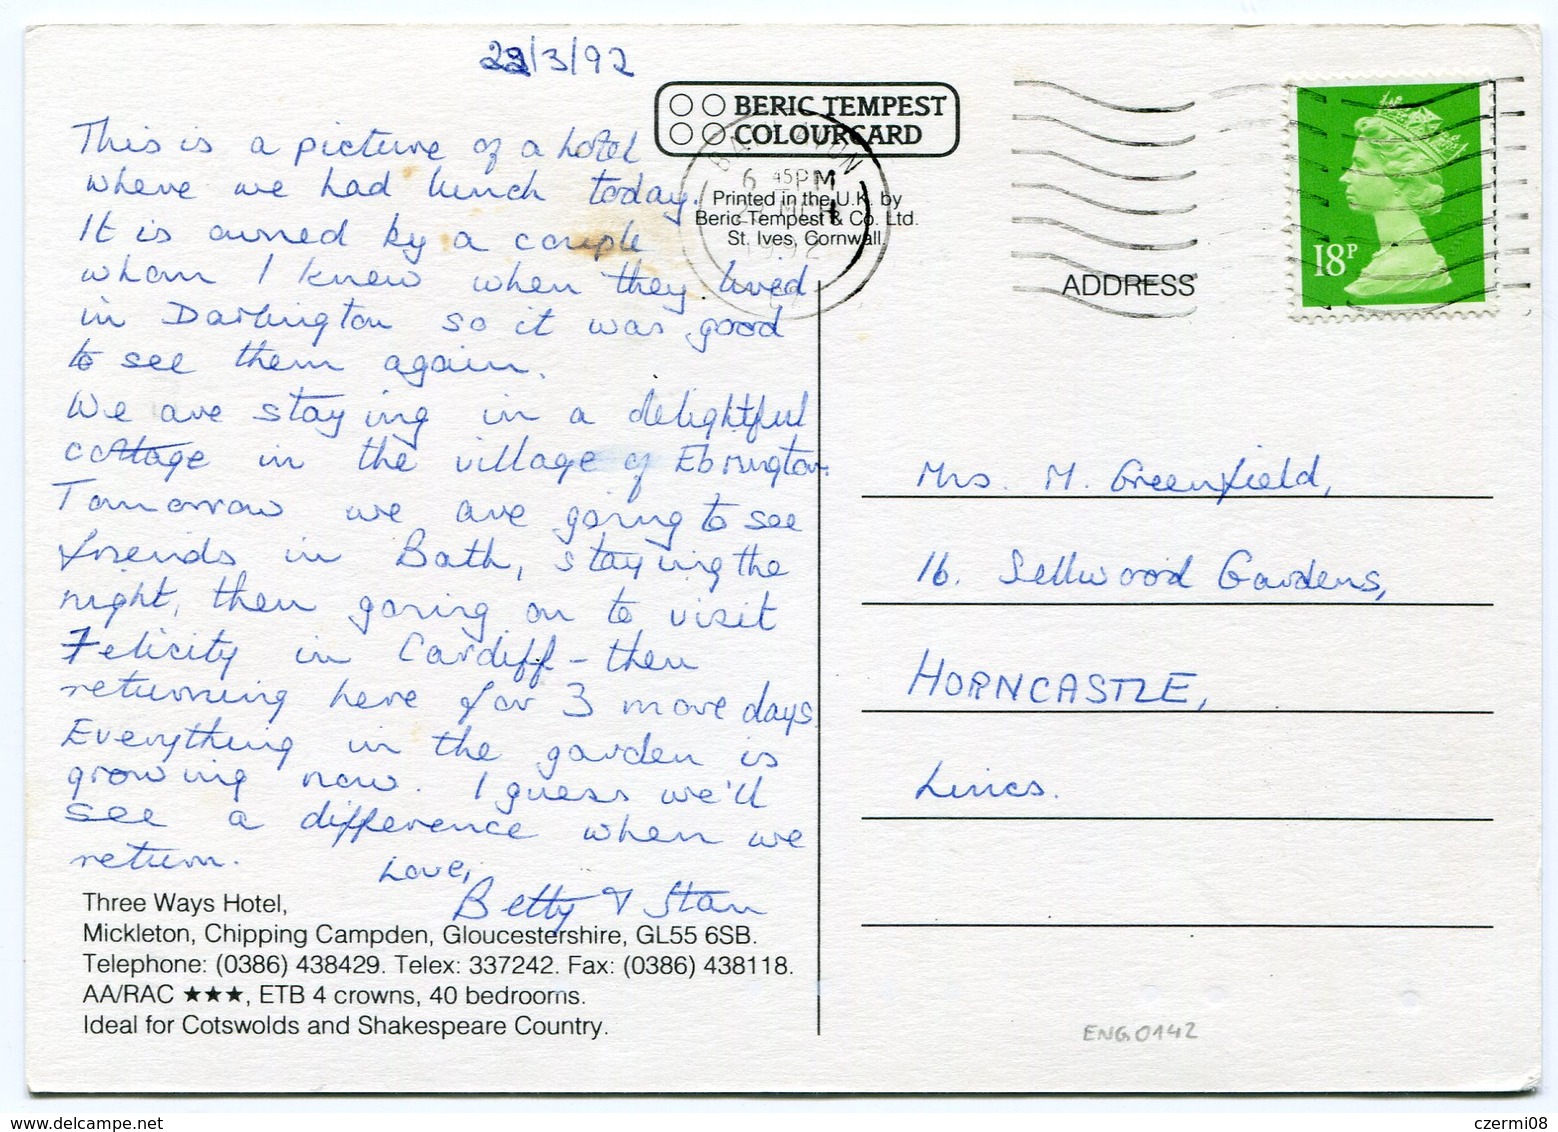 22/3/92
BERIC TEMPEST
COLOURCARD
Printed in the U.K. by
Beric Tempest & Co. Ltd.
St. Ives, Cornwall.
6 45PM
MCH
1992
18P
ADDRESS
This is a picture of a hotel
where we had lunch today.
It is owned by a couple
whom I knew when they lived
in Darlington so it was good
to see them again.
We are staying in a delightful
cottage in the village of Ebrington.
Tomorrow we are going to see
friends in Bath, staying the
night, then going on to visit
Felicity in Cardiff - then
returning here for 3 more days.
Everything in the garden is
growing now. I guess we'll
see a difference when we
return.
Love,
Betty & Stan
Three Ways Hotel,
Mickleton, Chipping Campden, Gloucestershire, GL55 6SB.
Telephone: (0386) 438429. Telex: 337242. Fax: (0386) 438118.
AA/RAC ★★★, ETB 4 crowns, 40 bedrooms.
Ideal for Cotswolds and Shakespeare Country.
Mrs. M. Greenfield,
16. Sellwood Gardens,
HORNCASTLE,
Lincs.
ENG0142
czermi08